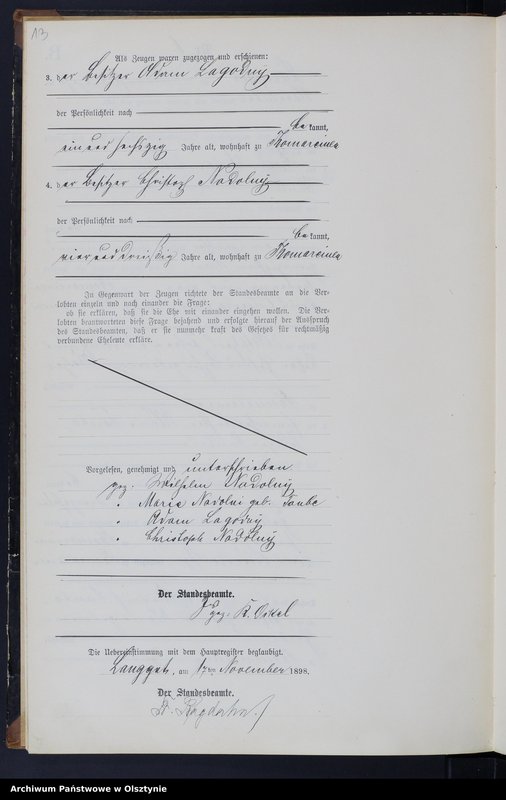 Als Zeugen waren zugezogen und erschienen:
3. der Besitzer Adam Lagodny
der Persönlichkeit nach
be kannt,
ein und sechszig Jahre alt, wohnhaft zu
4. der Besitzer Christoph Nadolny
der Persönlichkeit nach
be kannt,
vier und dreißig Jahre alt, wohnhaft zu
In Gegenwart der Zeugen richtete der Standesbeamte an die Ver-
lobten einzeln und nach einander die Frage:
ob sie erklären, daß sie die Ehe mit einander eingehen wollen. Die Ver-
lobten beantworteten diese Frage bejahend und erfolgte hierauf der Ausspruch
des Standesbeamten, daß er sie nunmehr kraft des Gesetzes für rechtmäßig
verbundene Eheleute erkläre.
Vorgelesen, genehmigt und unterschrieben
gez. Wilhelm Nadolny
" Marie Nadolni geb. Taube
" Adam Lagodny
" Christoph Nadolny
Der Standesbeamte.
gez. K.
Die Uebereinstimmung mit dem Hauptregister beglaubigt.
, am 17ten November 1898.
Der Standesbeamte.
Archiwum Państwowe w Olsztynie